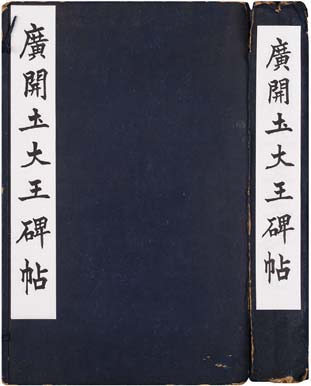 廣開土大王碑帖
廣開土大王碑帖